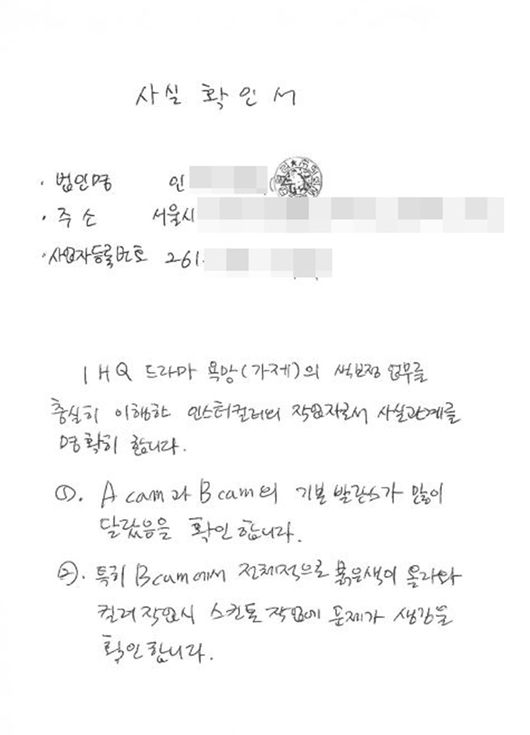 사실 확인서
· 법인명 인
· 주소 서울시
· 사업자등록번호 261.
IHQ 드라마 욕망(가제)의 색보정 업무를
충실히 이행한 인스터컬러의 작업자로서 사실관계를
명확히 합니다.
①. A cam과 B cam의 기본 발란스가 많이
달랐음을 확인합니다.
②. 특히 Bcam에서 전체적으로 붉은색이 올라와
컬러작업시 스킨톤 작업에 문제가 생김을
확인합니다.